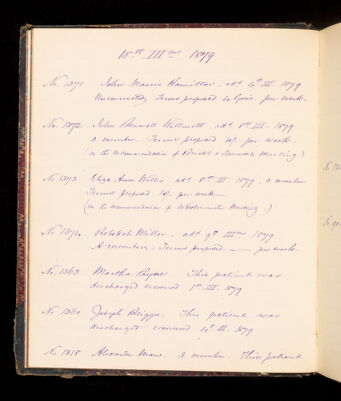 18th IIImo 1879
No. 1371 John Marris Hamilton. adt. 4th III. 1879
Unconnected, Terms proposed 4 Guins. per week.
No. 1372 John Bennett Wilmott. adt. 8th III. 1879
a member. Terms proposed 10/. per week.
(on the recommendation of & Meeting.)
No. 1373 Eliza Ann Willis adt. 8th III 1879. a member
Terms proposed 10/. per week
(on the recommendation of Westminster Meeting.)
No. 1374 Rebekah Miller. adt. 9th IIImo 1879
A member. Terms proposed. — per week.
No. 1363 Martha Payne. This patient was
discharged recovered 1st III. 1879
No. 1360 Joseph Briggs. This patient was
discharged recovered 4th III. 1879
No. 1318 Alexander Maw. a member. This patient